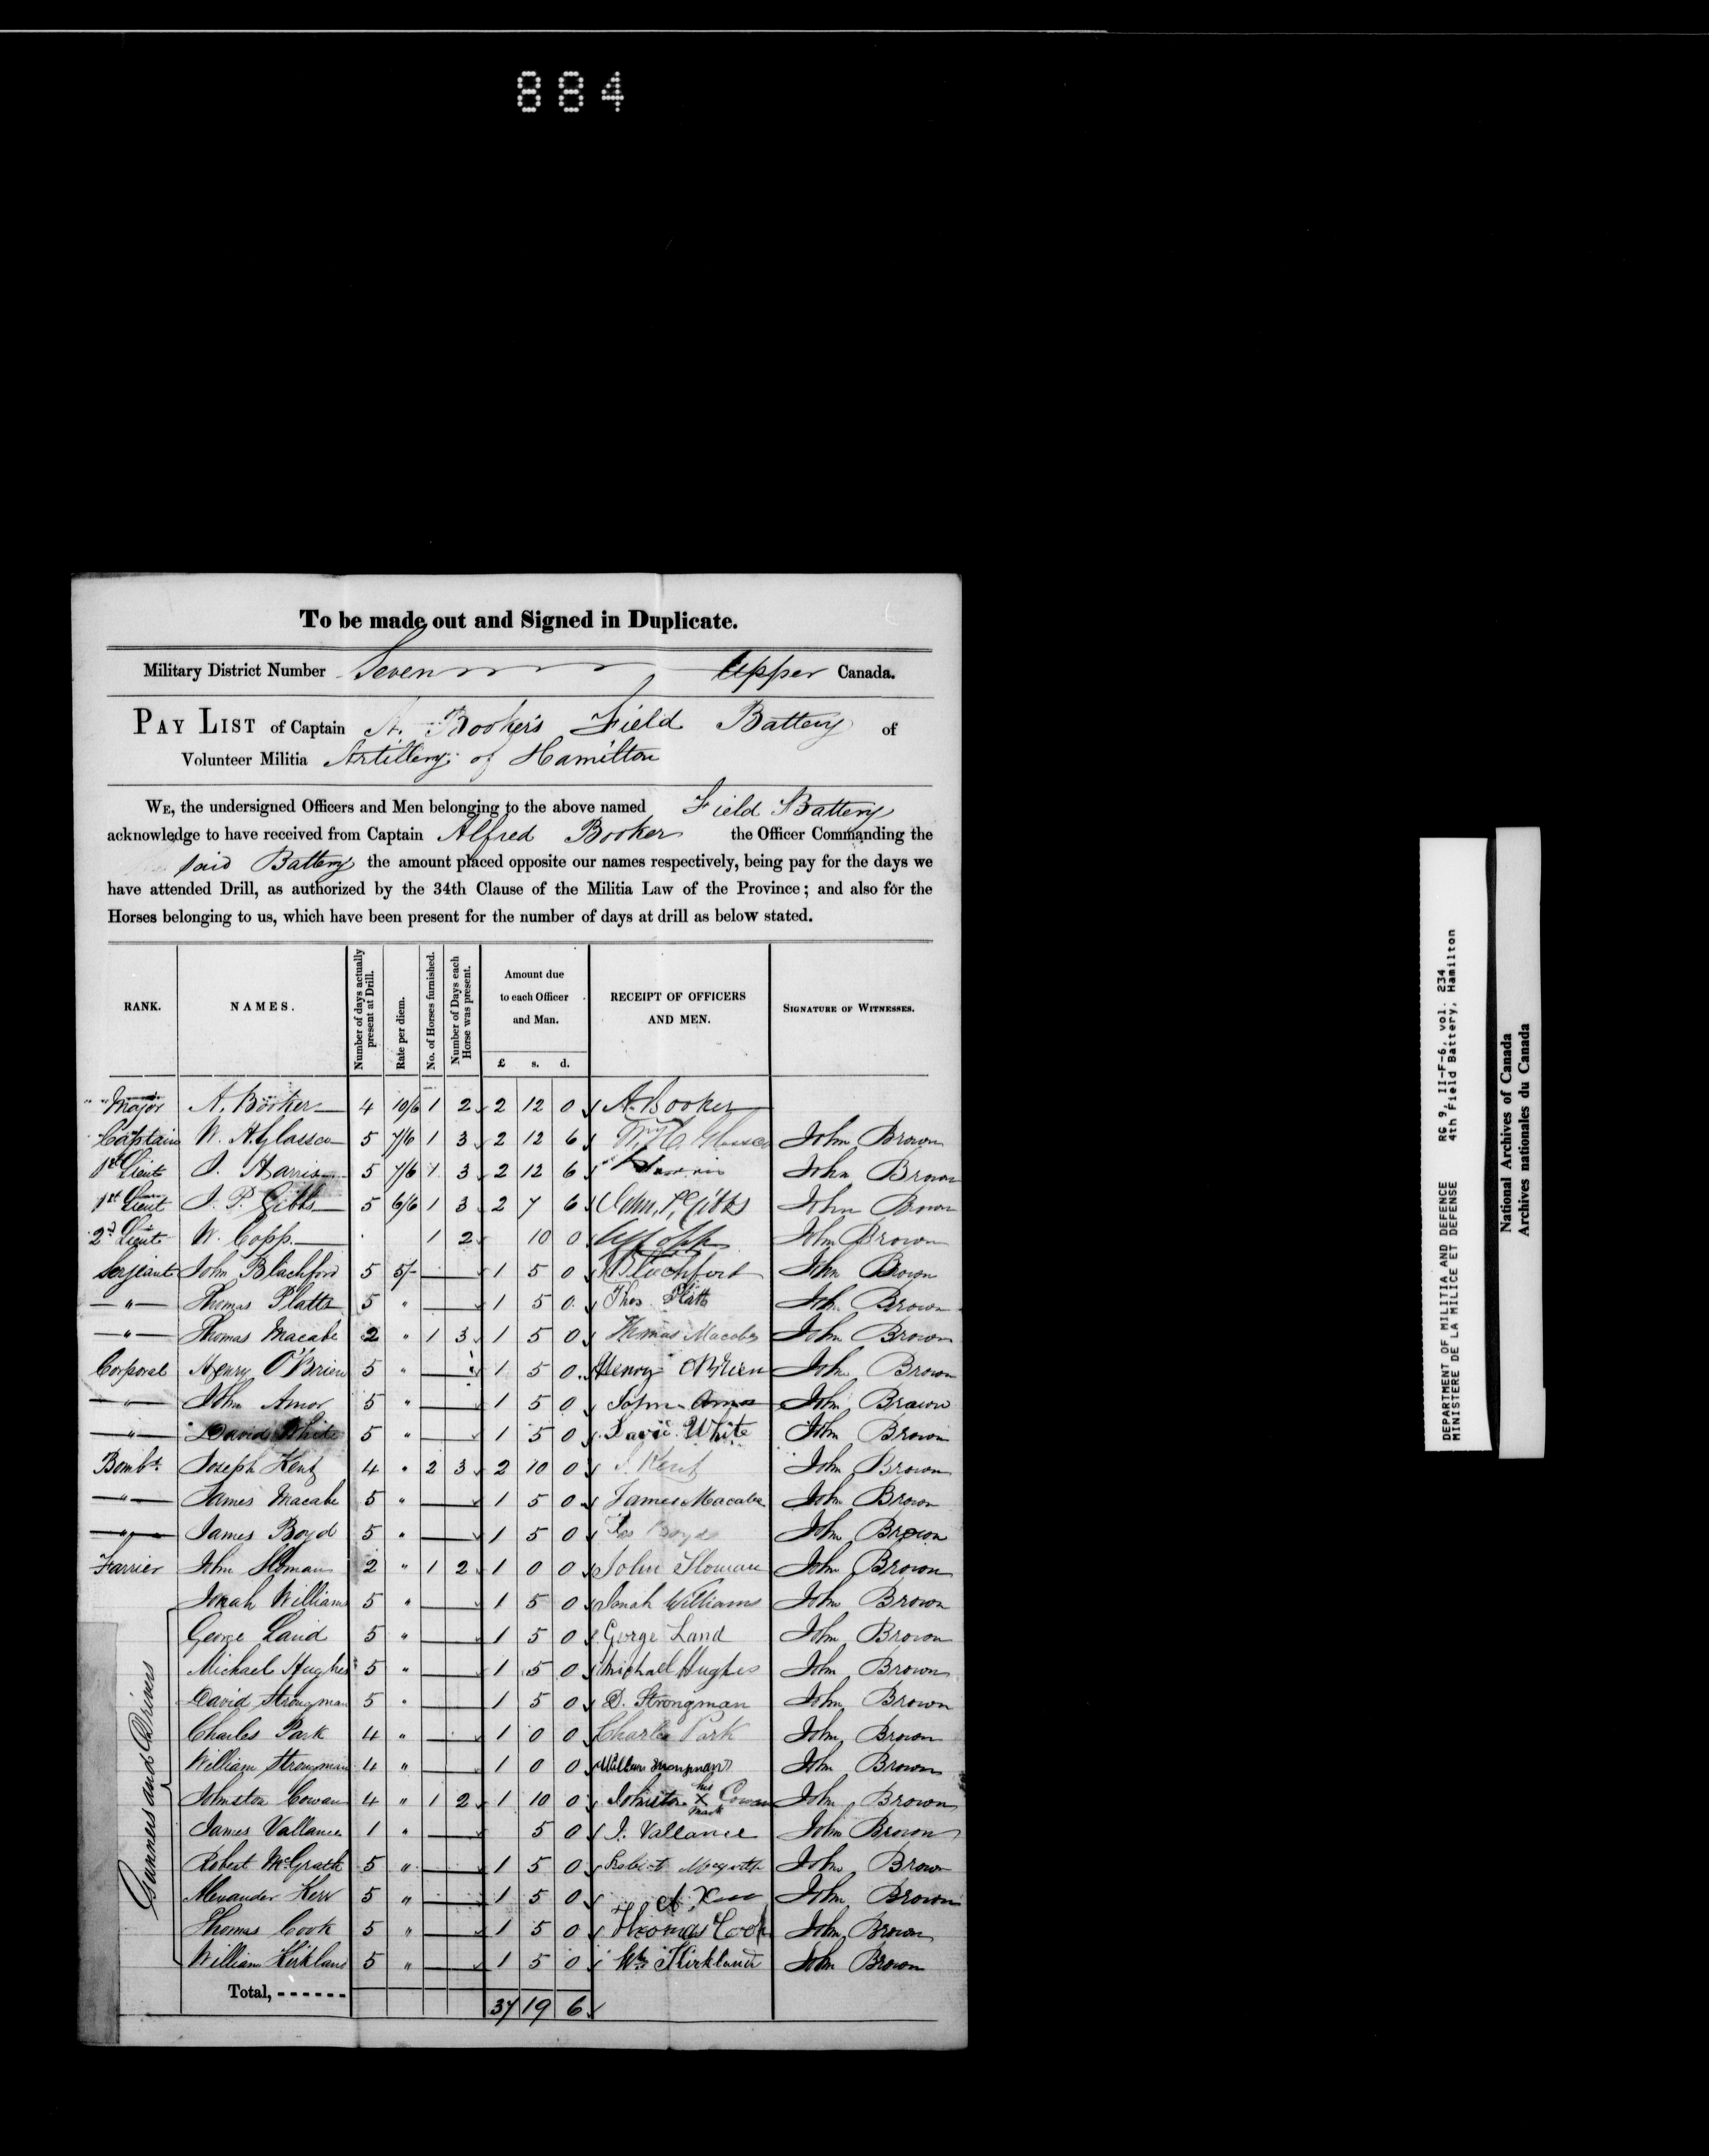 884
To be made out and Signed in Duplicate.
Military District Number Seven Upper Canada.
PAY LIST of Captain A. Booker's Field Battery of
Volunteer Militia Artillery of Hamilton
WE, the undersigned Officers and Men belonging to the above named Field Battery
acknowledge to have received from Captain Alfred Booker the Officer Commanding the
said Battery the amount placed opposite our names respectively, being pay for the days we
have attended Drill, as authorized by the 34th Clause of the Militia Law of the Province; and also for the
Horses belonging to us, which have been present for the number of days at drill as below stated.
RANK. NAMES. Number of days actually present at Drill. Rate per diem. No. of Horses furnished. Number of Days each Horse was present. Amount due to each Officer and Man. £ s. d. RECEIPT OF OFFICERS AND MEN. SIGNATURE OF WITNESSES.
Major A. Booker 4 10/6 1 2 2 12 0 A. Booker
Captain W. H. Glassco 5 7/6 1 3 2 12 6 W. H. Glassco John Brown
1st Lieut J. Harris 5 7/6 1 3 2 12 6 Harris John Brown
1st Lieut J. P. Gibbs 5 6/6 1 3 2 7 6 John P. Gibbs John Brown
2d Lieut W. Copp 1 2 10 0 W Copp John Brown
Serjeant John Blachford 5 5/- 1 5 0 Blachford John Brown
" Thomas Platts 5 " 1 5 0 Thos Platts John Brown
" Thomas Macabe 2 " 1 3 1 5 0 Thomas Macabe John Brown
Corporal Henry O'Brien 5 " 1 5 0 Henry OBrien John Brown
" John Amor 5 " 1 5 0 John Amor John Brown
" David White 5 " 1 5 0 David White John Brown
Bombr. Joseph Kent 4 " 2 3 2 10 0 J. Kent John Brown
" James Macabe 5 " 1 5 0 James Macabe John Brown
" James Boyd 5 " 1 5 0 Jas Boyd John Brown
Farrier John Sloman 2 " 1 2 1 0 0 John Sloman John Brown
Gunners and Drivers
Jonah Williams 5 " 1 5 0 Jonah Williams John Brown
George Land 5 " 1 5 0 Gorge Land John Brown
Michael Hughes 5 " 1 5 0 Michall Hughes John Brown
David Strongman 5 " 1 5 0 D. Strongman John Brown
Charles Park 4 " 1 0 0 Charles Park John Brown
William Strongman 4 " 1 0 0 William Strongman John Brown
Johnston Cowan 4 " 1 2 1 10 0 Johnston his X mark Cowan John Brown
James Vallance 1 " 5 0 J. Vallance John Brown
Robert McGrath 5 " 1 5 0 Robert John Brown
Alexander Kerr 5 " 1 5 0 A Kerr John Brown
Thomas Cook 5 " 1 5 0 Thomas Cook John Brown
William Kirkland 5 " 1 5 0 Wm Kirkland John Brown
Total, - - - - - - 37 19 6
DEPARTMENT OF MILITIA AND DEFENCE RG 9, II-F-6, vol. 234
MINISTERE DE LA MILICE ET DEFENSE 4th Field Battery, Hamilton
National Archives of Canada
Archives nationales du Canada